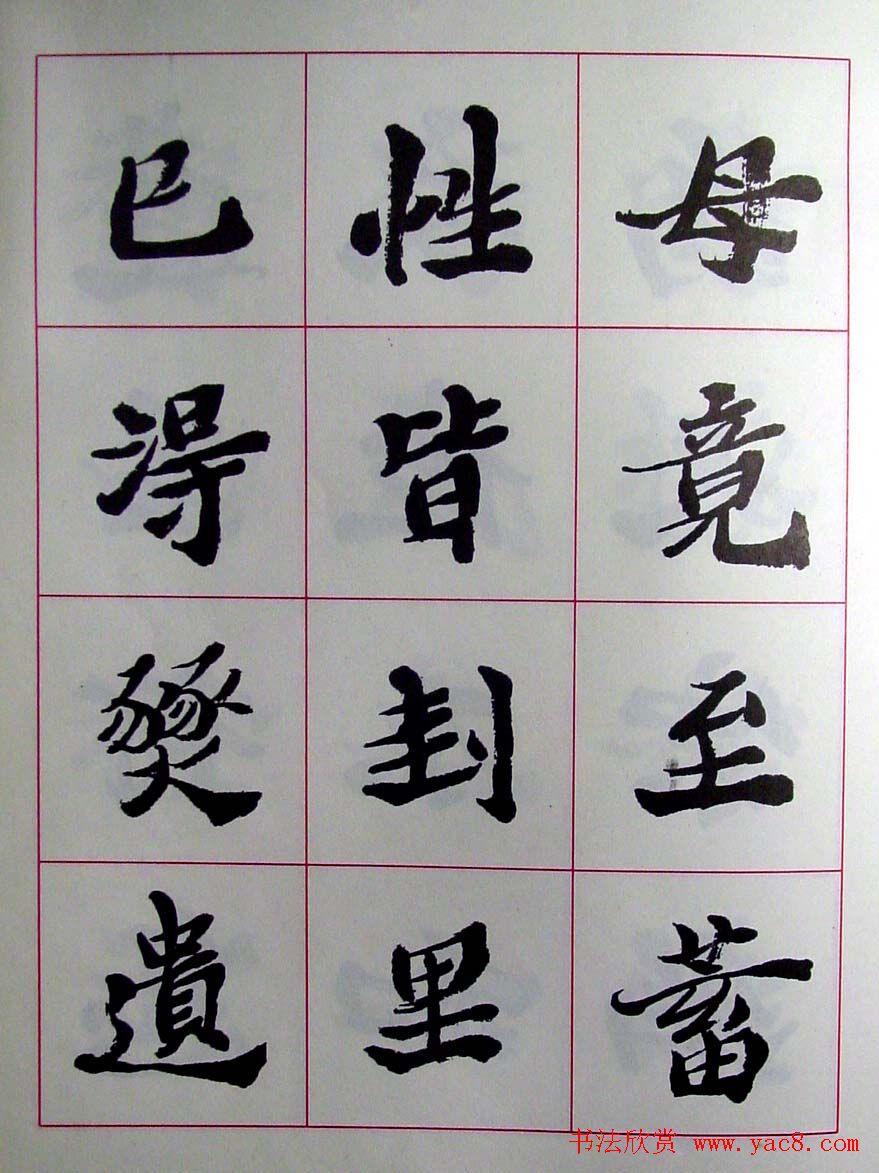 母竟至蓄
性皆刲里
已得燹遺
书法欣赏 www.yac8.com